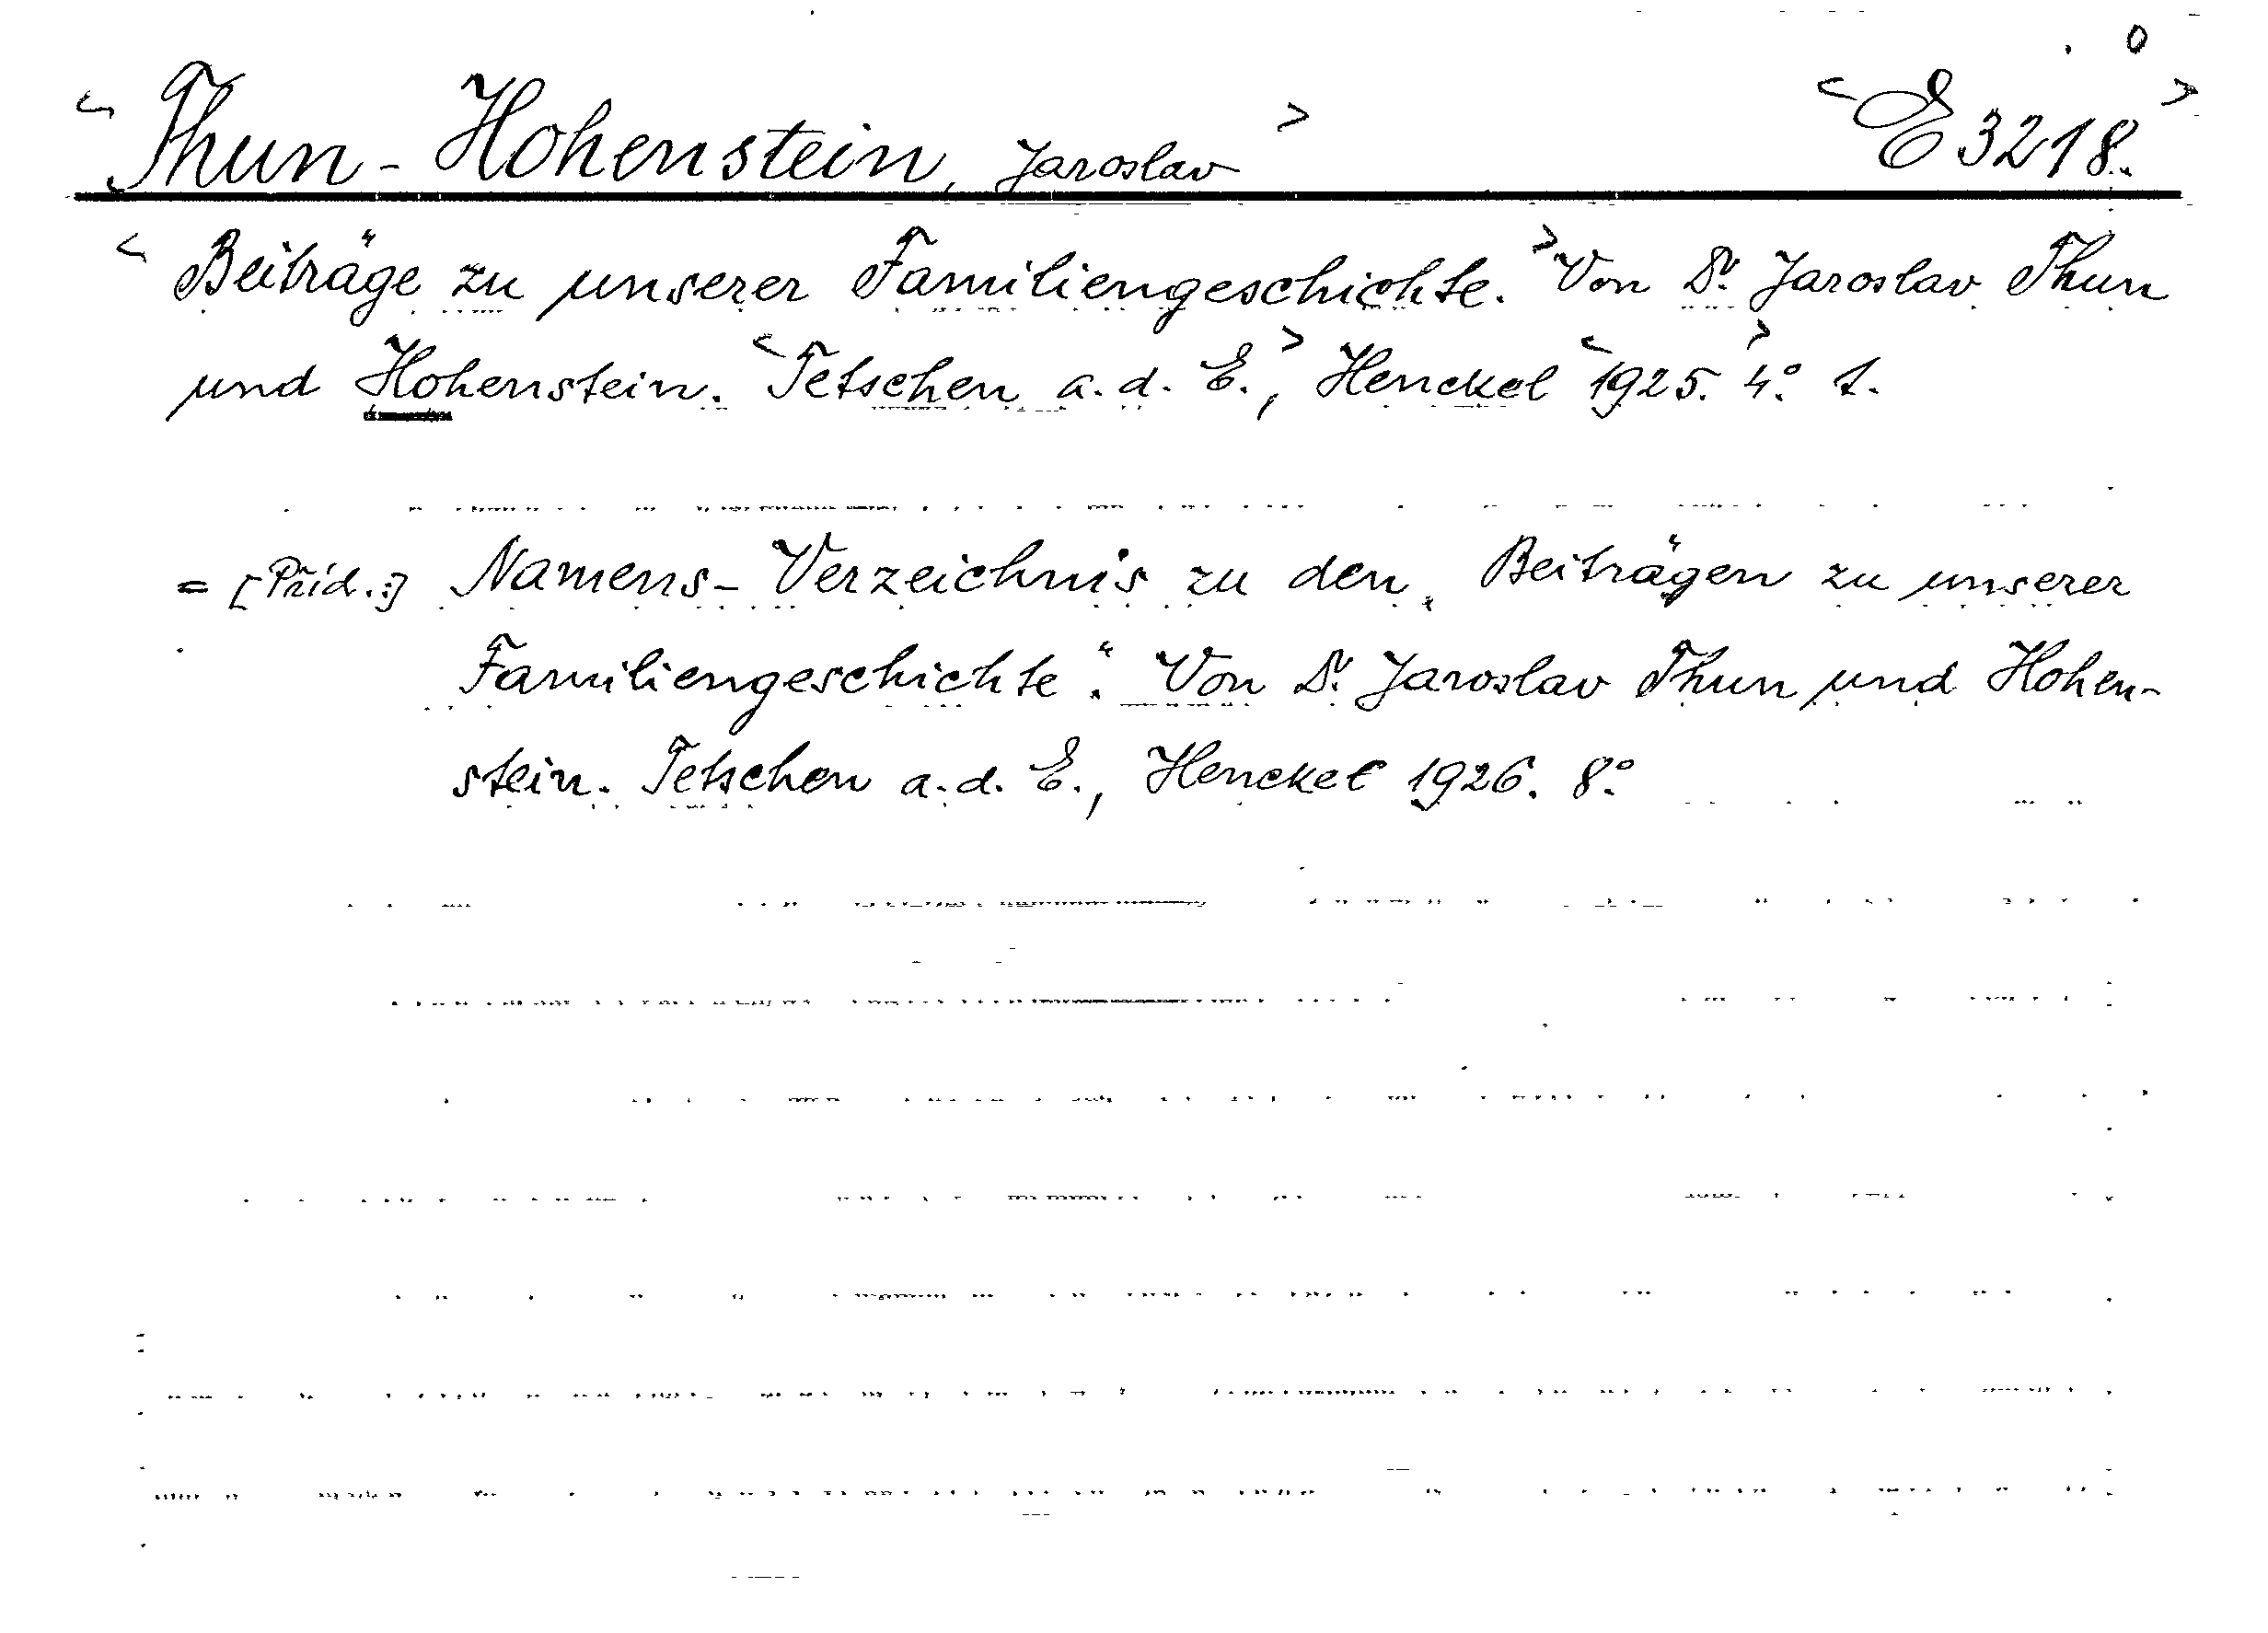 <Thun-Hohenstein, Jaroslav> <E 3218.>
<Beiträge zu unserer Familiengeschichte.> Von Dr. Jaroslav Thun
und Hohenstein. <Tetschen a. d. E.>, Henckel <1925.> 4.° 1.
= [Příd.:] Namens-Verzeichnis zu den „Beiträgen zu unserer
Familiengeschichte“. Von Dr. Jaroslav Thun und Hohen-
stein. Tetschen a. d. E., Henckel 1926. 8.°